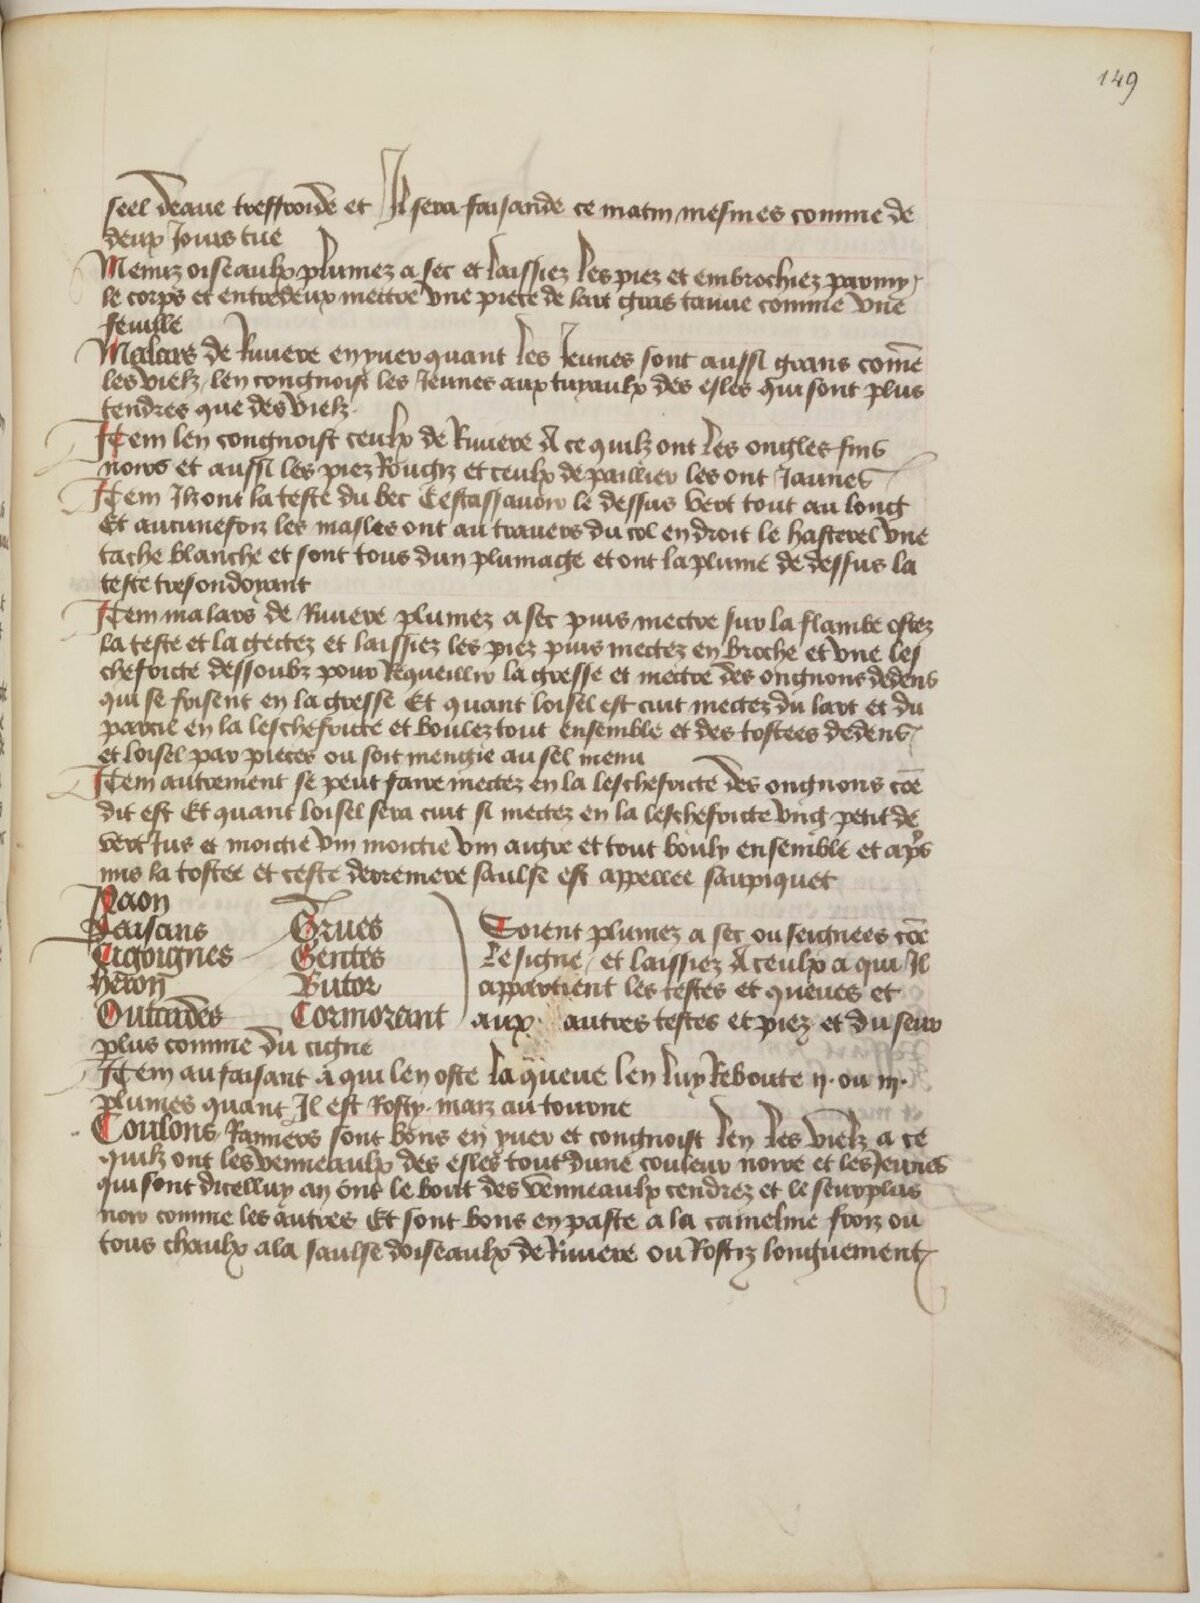 149
seel deaue tresfroide et Il sera faisande ce matin mesmes comme de
deux Jours tue
Menuz oiseaulx plumez a sec et laissiez les piez et embrochiez parmy
le corps et entredeux mectre vne piece de lart gras tanue comme vne
feuille
Malars de Riuiere en yuer quant les Jeunes sont aussi grans come
les vielz len congnoist les Jeunes aux tuyaulx des esles qui sont plus
tendres que des vielz
Item len congnoist ceulx de Riuiere A ce quilz ont les ongles fins
noirs et aussi les piez Rougiz et ceulx de paillier les ont Jaunes
Item Ilz ont la teste du bec Cestassauoir le dessus vert tout au long
Et aucuneffoiz les masles ont au trauers du col endroit le hasterel vne
tache blanche et sont tous dun plumage et ont la plume de dessus la
teste tresondoyant
Item malars de Riuiere plumez a sec puis mectre sur la flambe ostez
la teste et la gectez et laissiez les piez puis mectez en broche et vne les
chefricte dessoubz pour Requeillir la gresse et mectre des ongnons dedens
qui se frisent en la gresse Et quant loisel est cuit mectez du lart et du
parcil en la leschefricte et boulez tout ensemble et des tostees dedens
et loisel par pieces ou soit mengie au sel menu
Item autrement se peut faire mectez en la leschefricte des ongnons coe
dit est Et quant loisel sera cuit si mectez en la leschefricte vng petit de
vert Jus et moictie vin moictie vin aigre et tout bouly ensemble et aps
mis la tostee et ceste derreniere saulse est appellee saupiquet
Paon
Faisans Grues Soient plumez a sec ou seignees coe
Cigoignes Gentes le signe et laissiez A ceulx a qui Il
Heron Butor appartient les testes et queues et
Outardes Cormorant aux autres testes et piez et du seur
plus comme du cigne
Item au faisant a qui len oste la queue len luy Reboute ii. ou iii.
plumes quant Il est Rosty. maiz autourne
Coulons Ramiers sont bons en yuer et congnoist len les vielz a ce
quilz ont les venneaulx des esles tout dune couleur noire et les Jeunes
qui sont dicelluy an ont le bout des venneaulx cendrez et le seurplus
noir comme les autres Et sont bons en paste a la cameline froiz ou
tous chaulx a la saulse doiseaulx de Riuiere ou Rostiz longuement